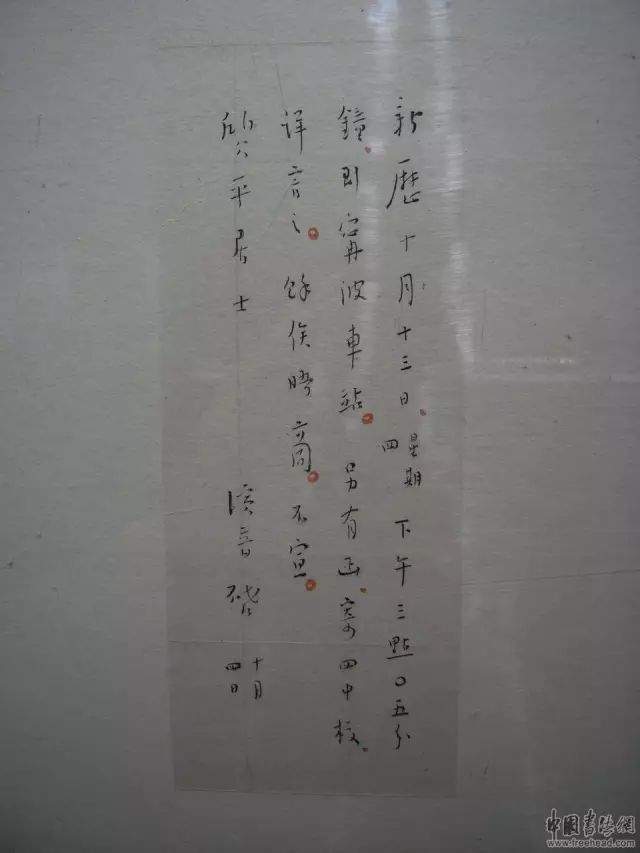 新歷十月十三日、星期四下午三點〇五分
鐘、到甯波車站。另有函、寄四中校、
詳言之。餘俟晤商。不宣。
欣平居士
演音啓 十月四日
中國書法網
www.freehead.com